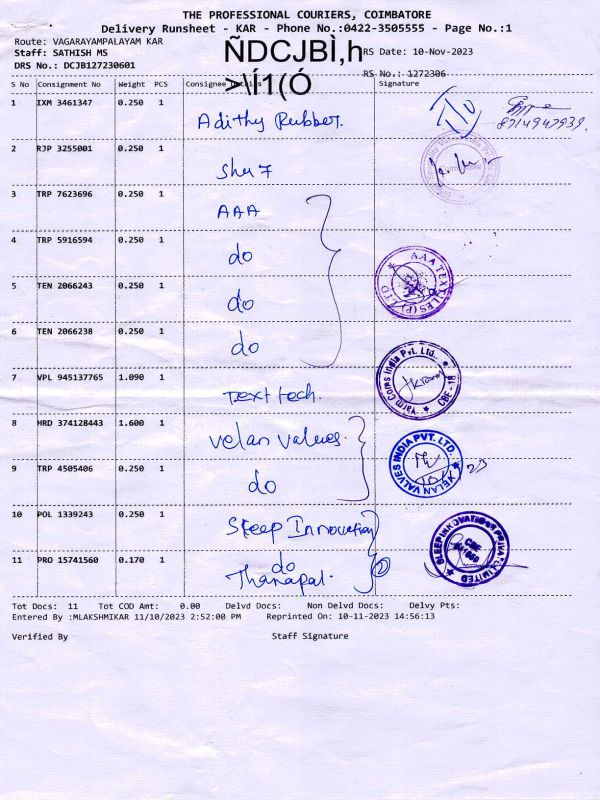 THE PROFESSIONAL COURIERS, COIMBATORE
Delivery Runsheet - KAR - Phone No.:0422-3505555 - Page No.:1
Route: VAGARAYAMPALAYAM KAR
Staff: SATHISH MS
ÑDCJBÌ,h
RS Date: 10-Nov-2023
DRS No.: DCJB127230601
>\Í1(Ó
RS No.: 1272306
S No Consignment No Weight PCS Consignee Details Signature
1 IXM 3461347 0.250 1 Adithy Rubber. 8714947939.
2 RJP 3255001 0.250 1
3 TRP 7623696 0.250 1 AAA
4 TRP 5916594 0.250 1 do AAA TEXTILES (P) LTD
5 TEN 2066243 0.250 1 do
6 TEN 2066238 0.250 1 do
7 VPL 945137765 1.090 1 Text tech. Yarm Coms India Pvt. Ltd. CBE - 18
8 HRD 374128443 1.600 1 Velan Valves. VELAN VALVES INDIA PVT. LTD.
9 TRP 4505406 0.250 1 do
10 POL 1339243 0.250 1 Sleep Innovation SLEEP INNOVATIONS PRIVATE LIMITED CBE
11 PRO 15741560 0.170 1 do
Thanapal.
Tot Docs: 11 Tot COD Amt: 0.00 Delvd Docs: Non Delvd Docs: Delvy Pts:
Entered By :MLAKSHMIKAR 11/10/2023 2:52:00 PM Reprinted On : 10-11-2023 14:56:13
Verified By Staff Signature